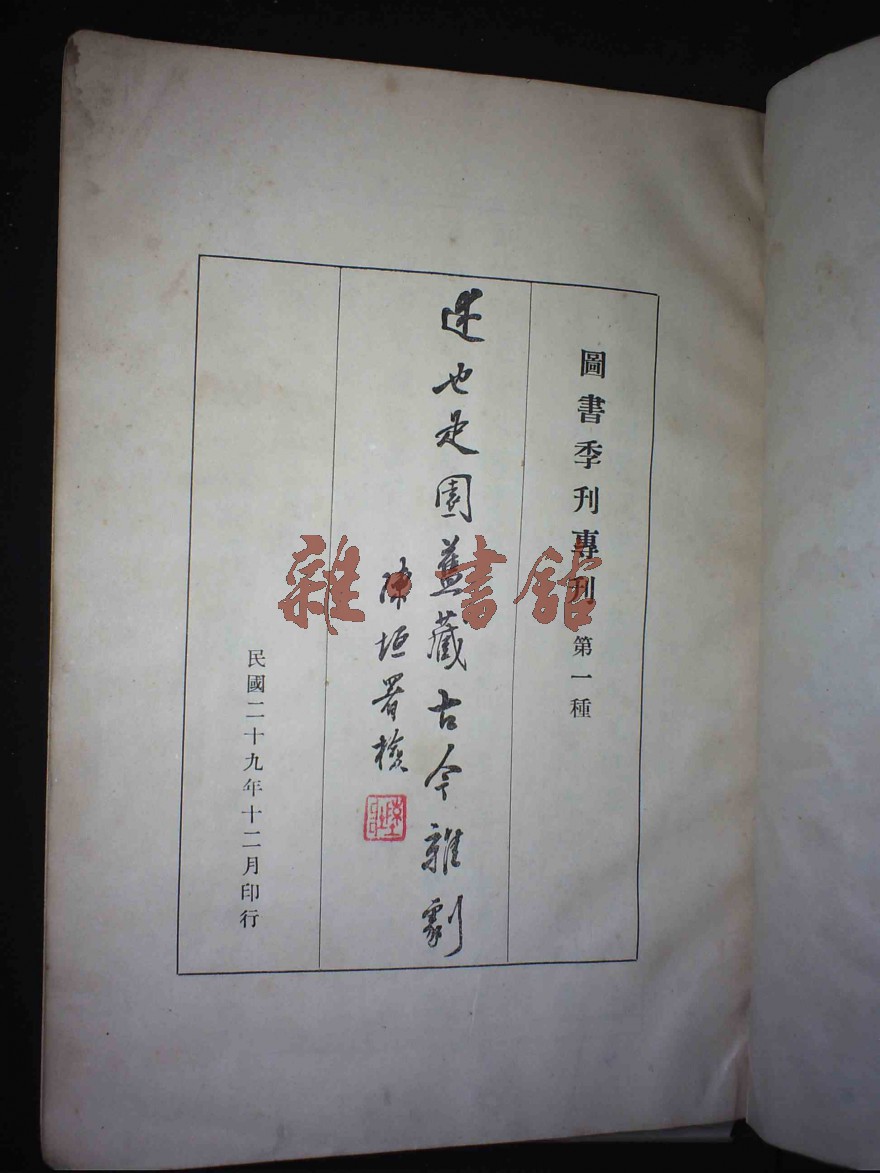 圖書季刊專刊第一種
述也是園舊藏古今雜劇
陳垣署檢
民國二十九年十二月印行
雜·書館